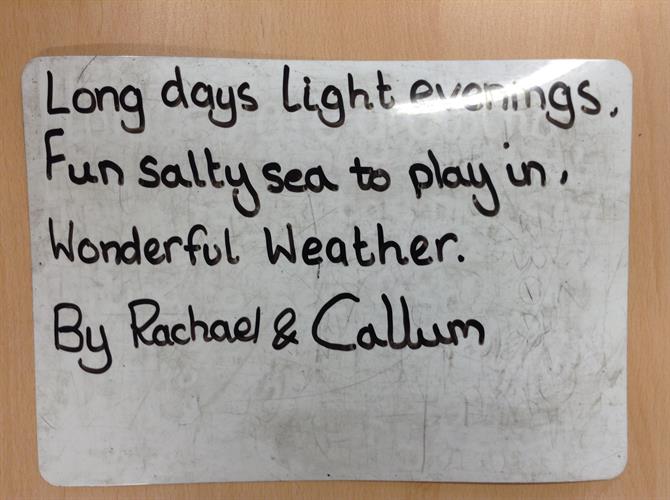 Long days light evenings,
Fun salty sea to play in,
Wonderful Weather.
By Rachael & Callum